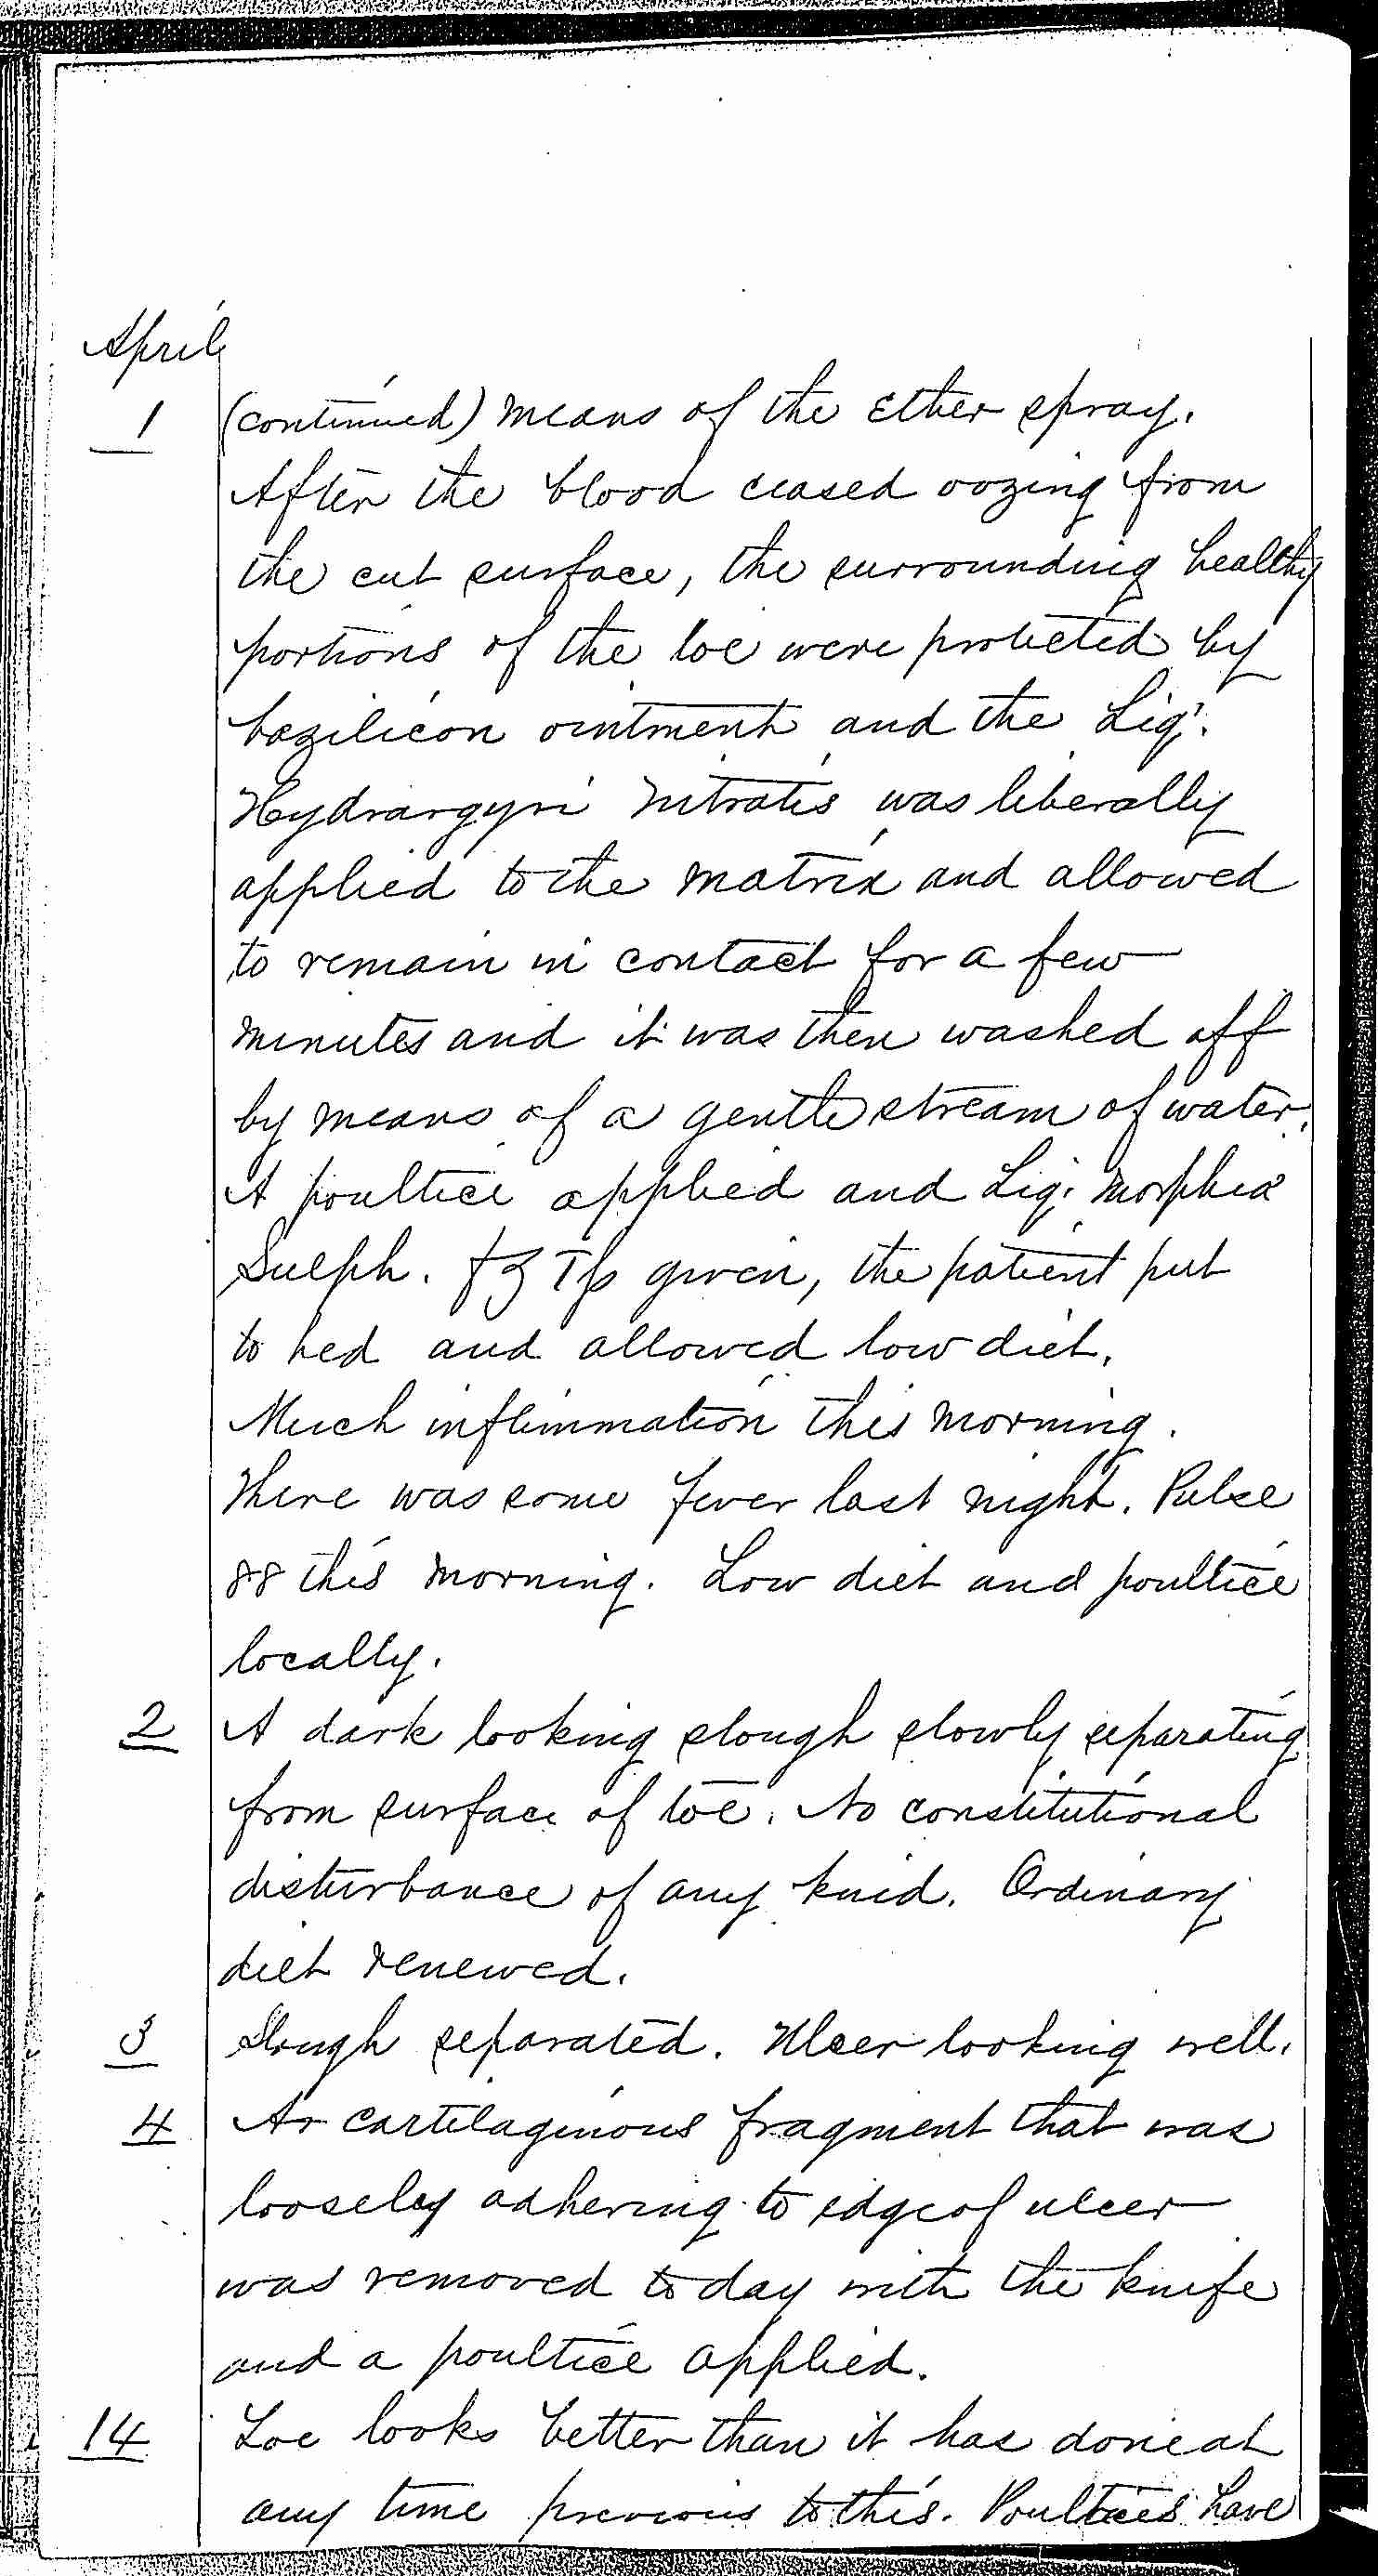 April
1 (continued) means of the Ether spray.
After the blood ceased oozing from
the cut surface, the surrounding healthy
portions of the toe were protected by
bazilicon ointment and the Liq.
Hydrargyri Nitratis was liberally
applied to the matrix and allowed
to remain in contact for a few
minutes and it was then washed off
by means of a gentle stream of water.
A poultice applied and Liq. Morphia
Sulph. fʒ given, the patient put
to bed and allowed low diet.
Much inflimmation this morning.
There was some fever last night. Pulse
88 this morning. Low diet and poultice
locally.
2 A dark looking slough slowly separating
from surface of toe. No constitutional
disturbance of any kind. Ordinary
diet renewed.
3 Slough separated. Ulcer looking well.
4 A cartilaginous fragment that was
loosely adhering to edge of ulcer
was removed to day with the knife
and a poultice applied.
14 Toe looks better than it has done at
any time previous to this. Poultices have